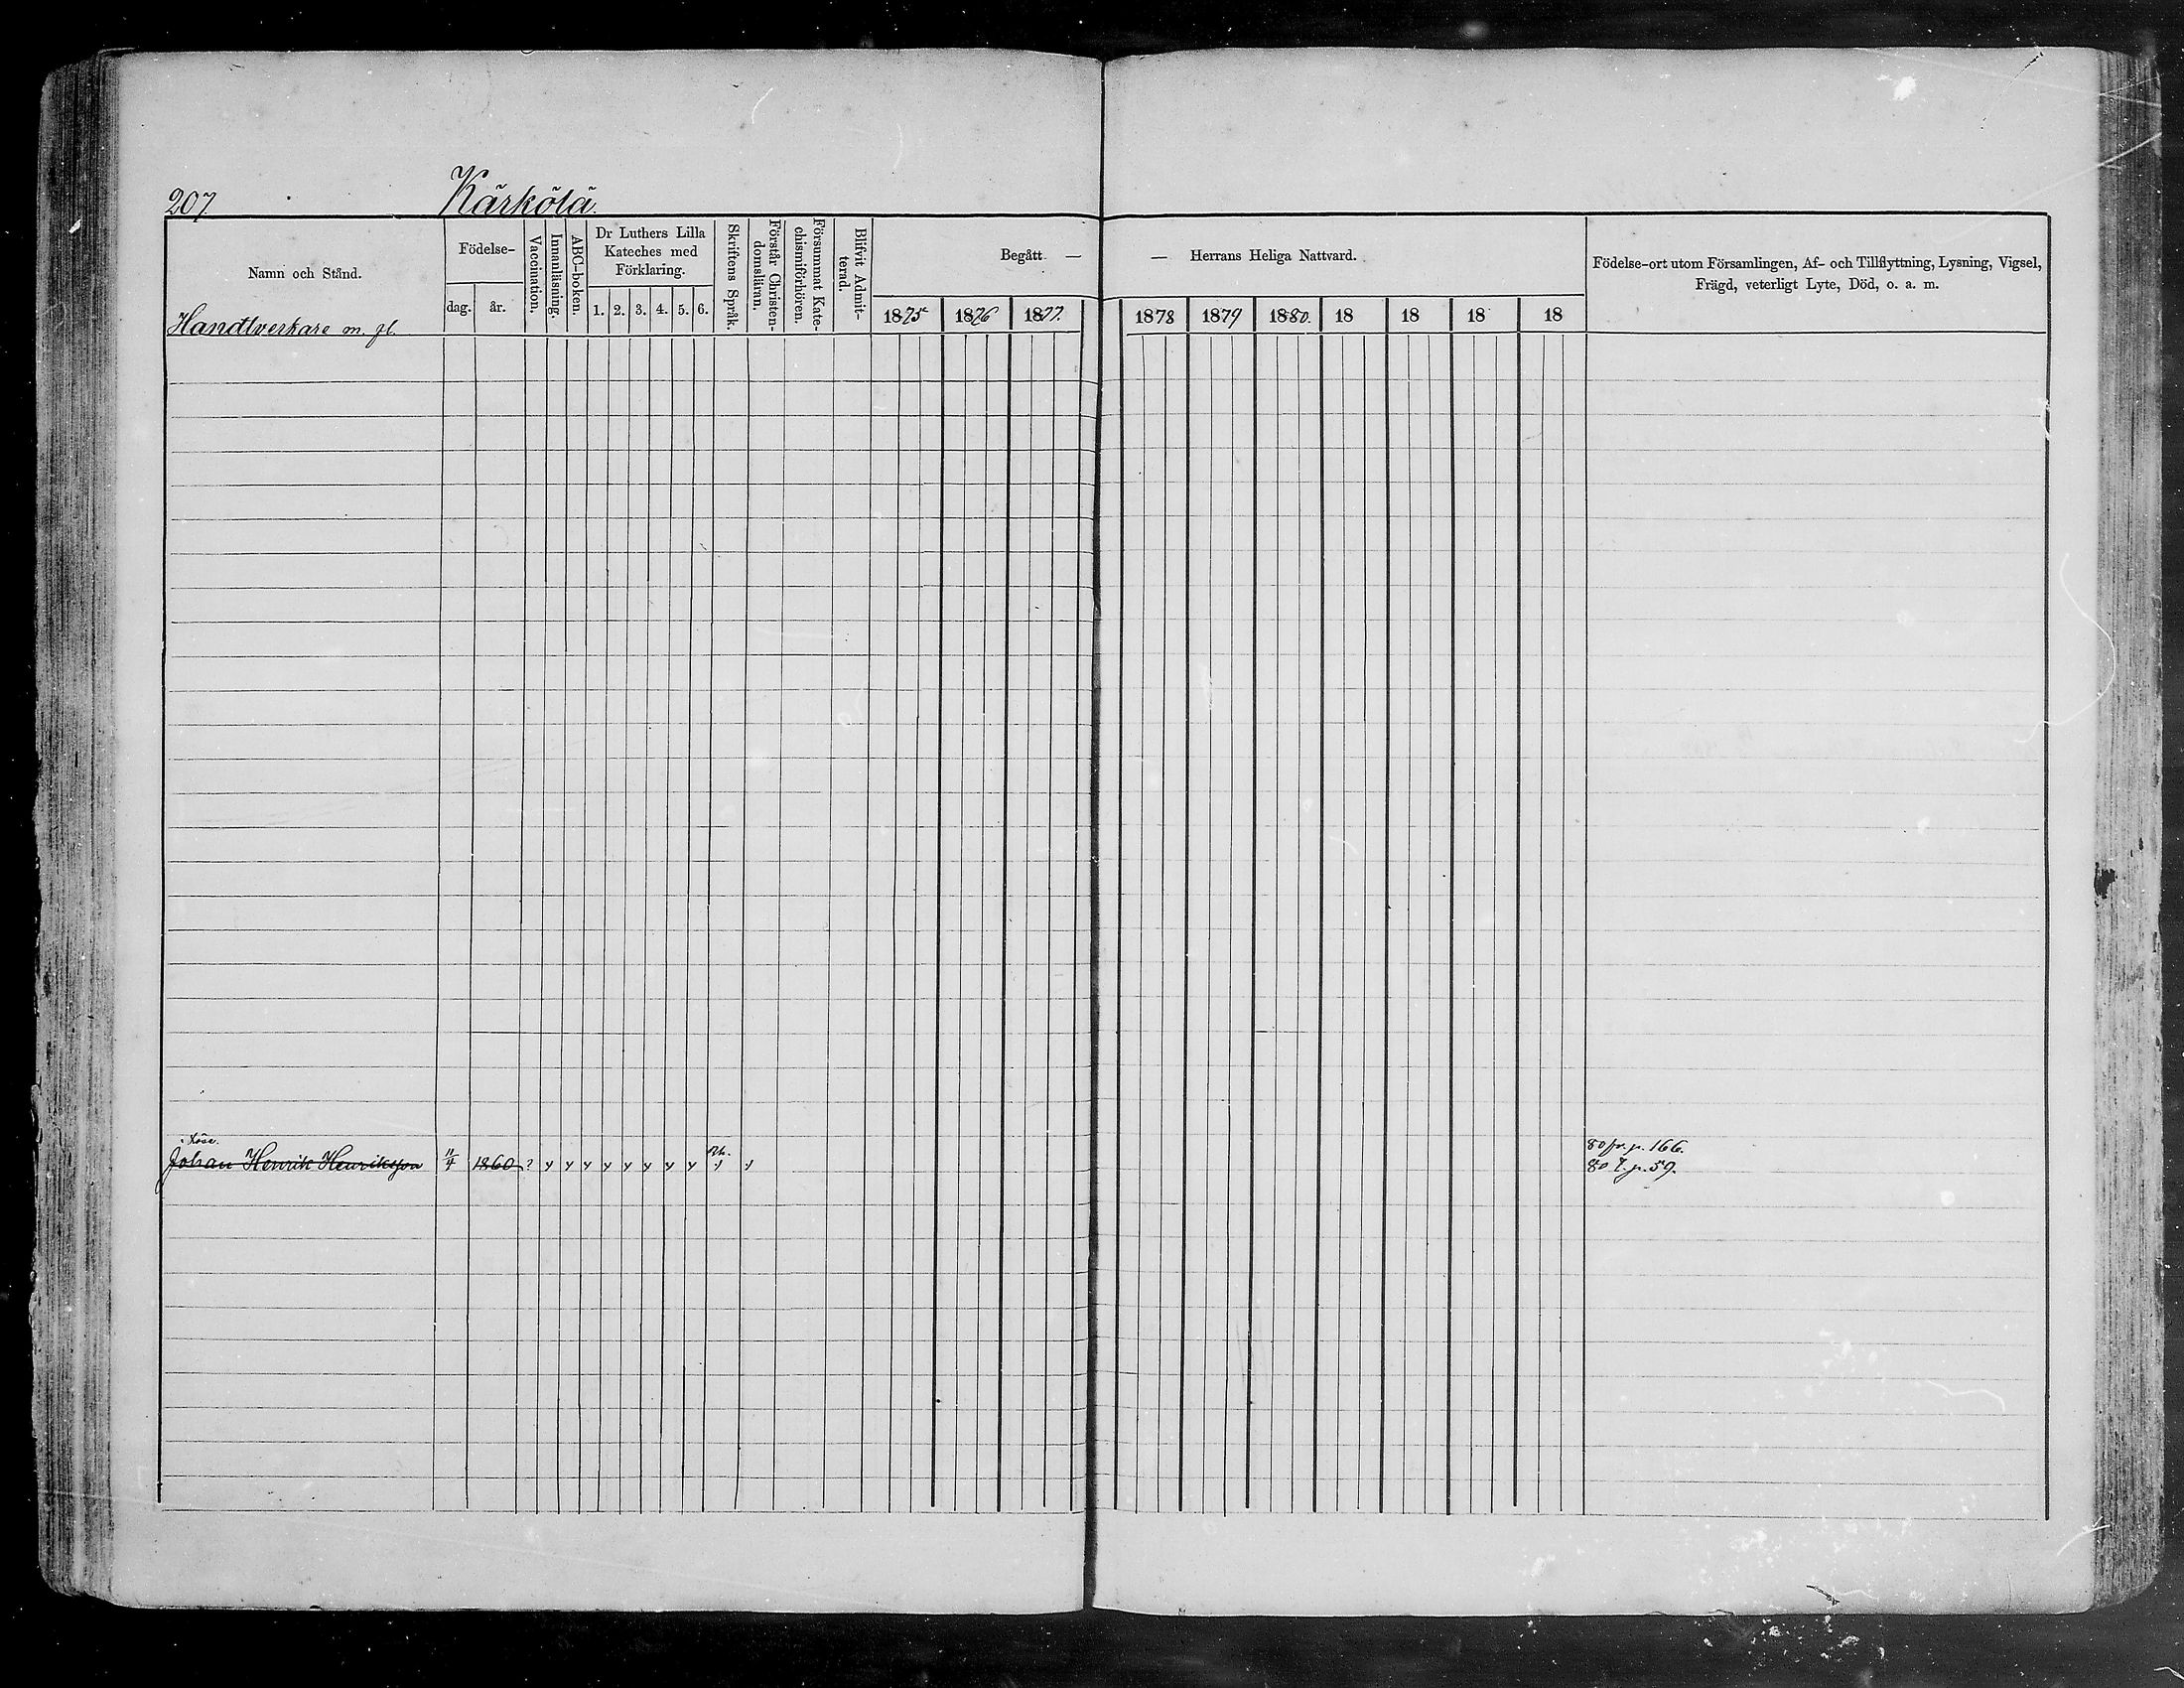 207. Kärkölä.
Namn och Stånd.
Handtverkare m. fl.
Födelse-
dag. år.
Vaccination.
Innanläsning.
ABC-boken.
Dr Luthers Lilla
Kateches med
Förklaring.
1. 2. 3. 4. 5. 6.
Skriftens Språk.
Förstår Christen-
domsläran.
Försummat Kate-
chismiförhören.
Blifvit Admit-
terad.
Begått — — Herrans Heliga Nattvard.
1875 1876 1877. 1878 1879 1880. 18 18 18 18
Födelse-ort utom Församlingen, Af- och Tillflyttning, Lysning, Vigsel,
Frägd, veterligt Lyte, Död, o. a. m.
80 fr. p. 166.
Johan Henrik Henriksson 11/4 1860 ? y y y y y y y y y y 80 t. p. 59.